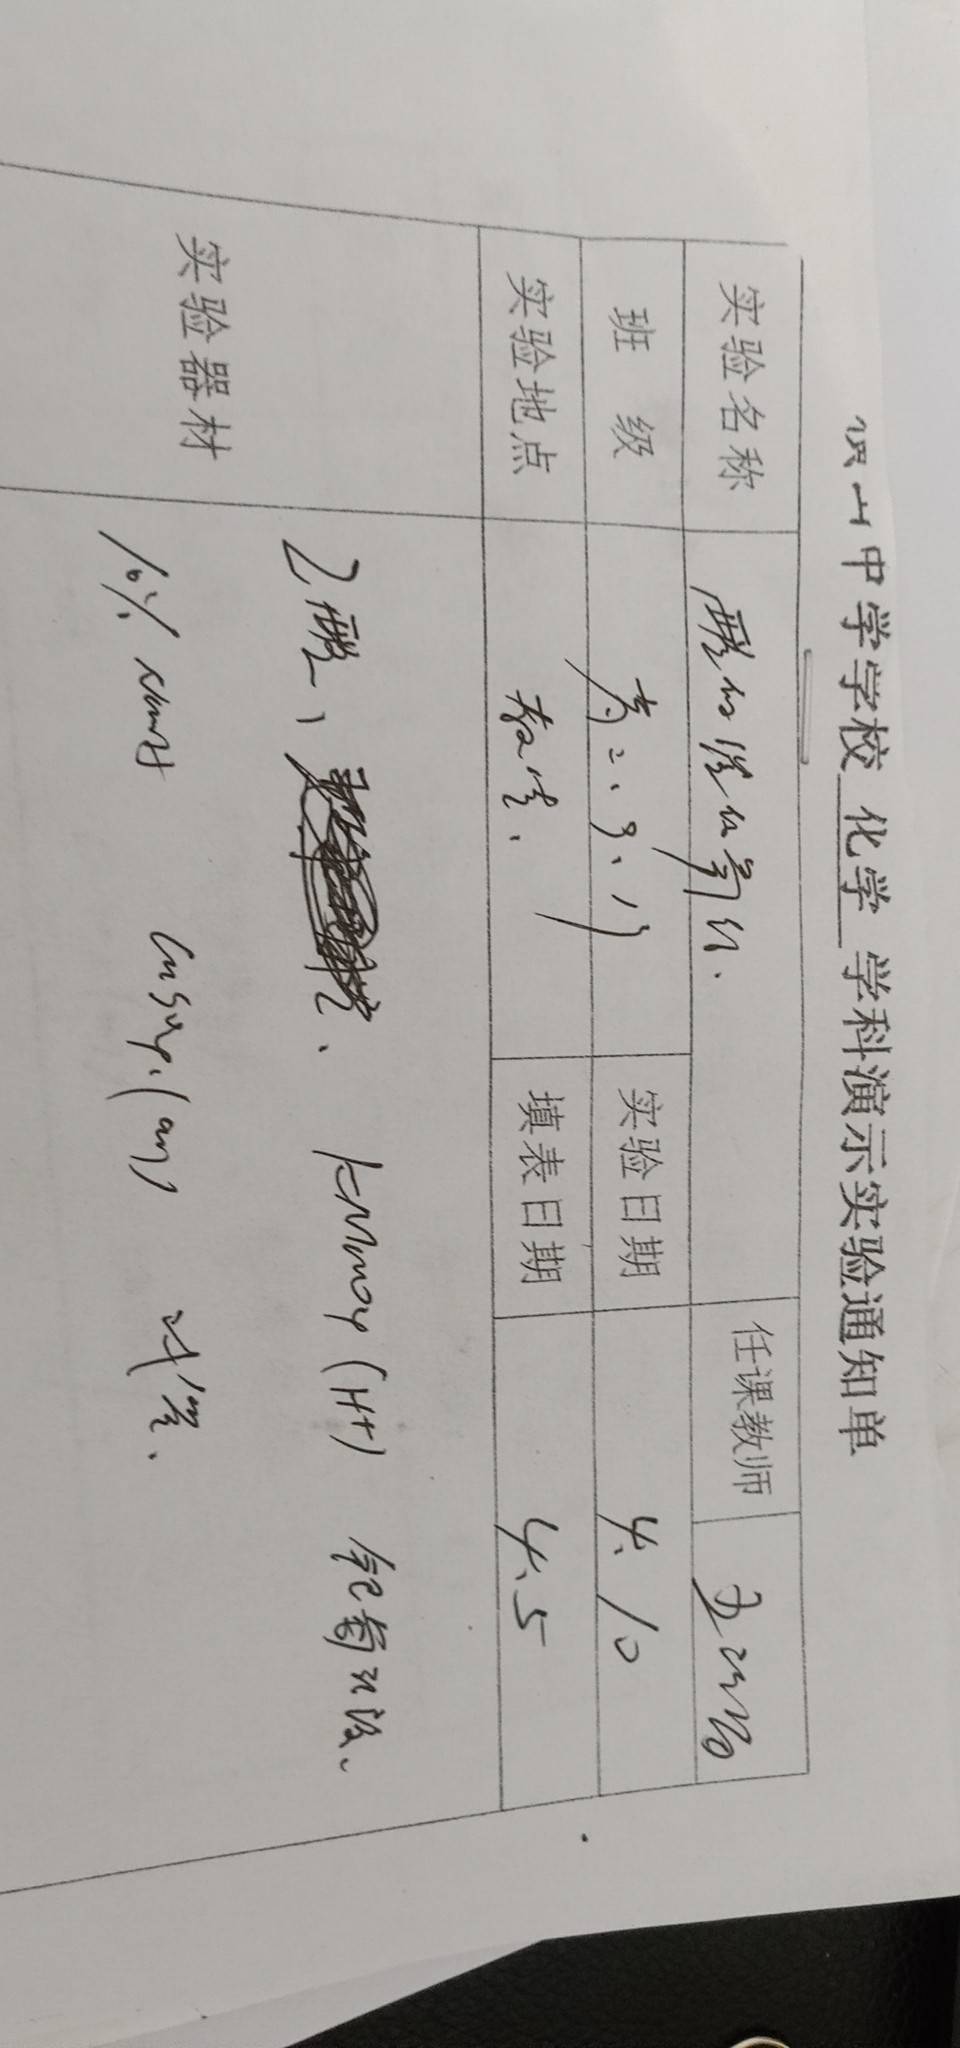 汉山中学学校 化学 学科演示实验通知单
实验名称 醛的催化氧化. 任课教师
班级 高二.9.17 实验日期 4.10
实验地点 教室. 填表日期 4.5
实验器材 乙醛、 KMnO4(H+) 银氨溶液、
10% NaOH CuSO4(aq) 试管.